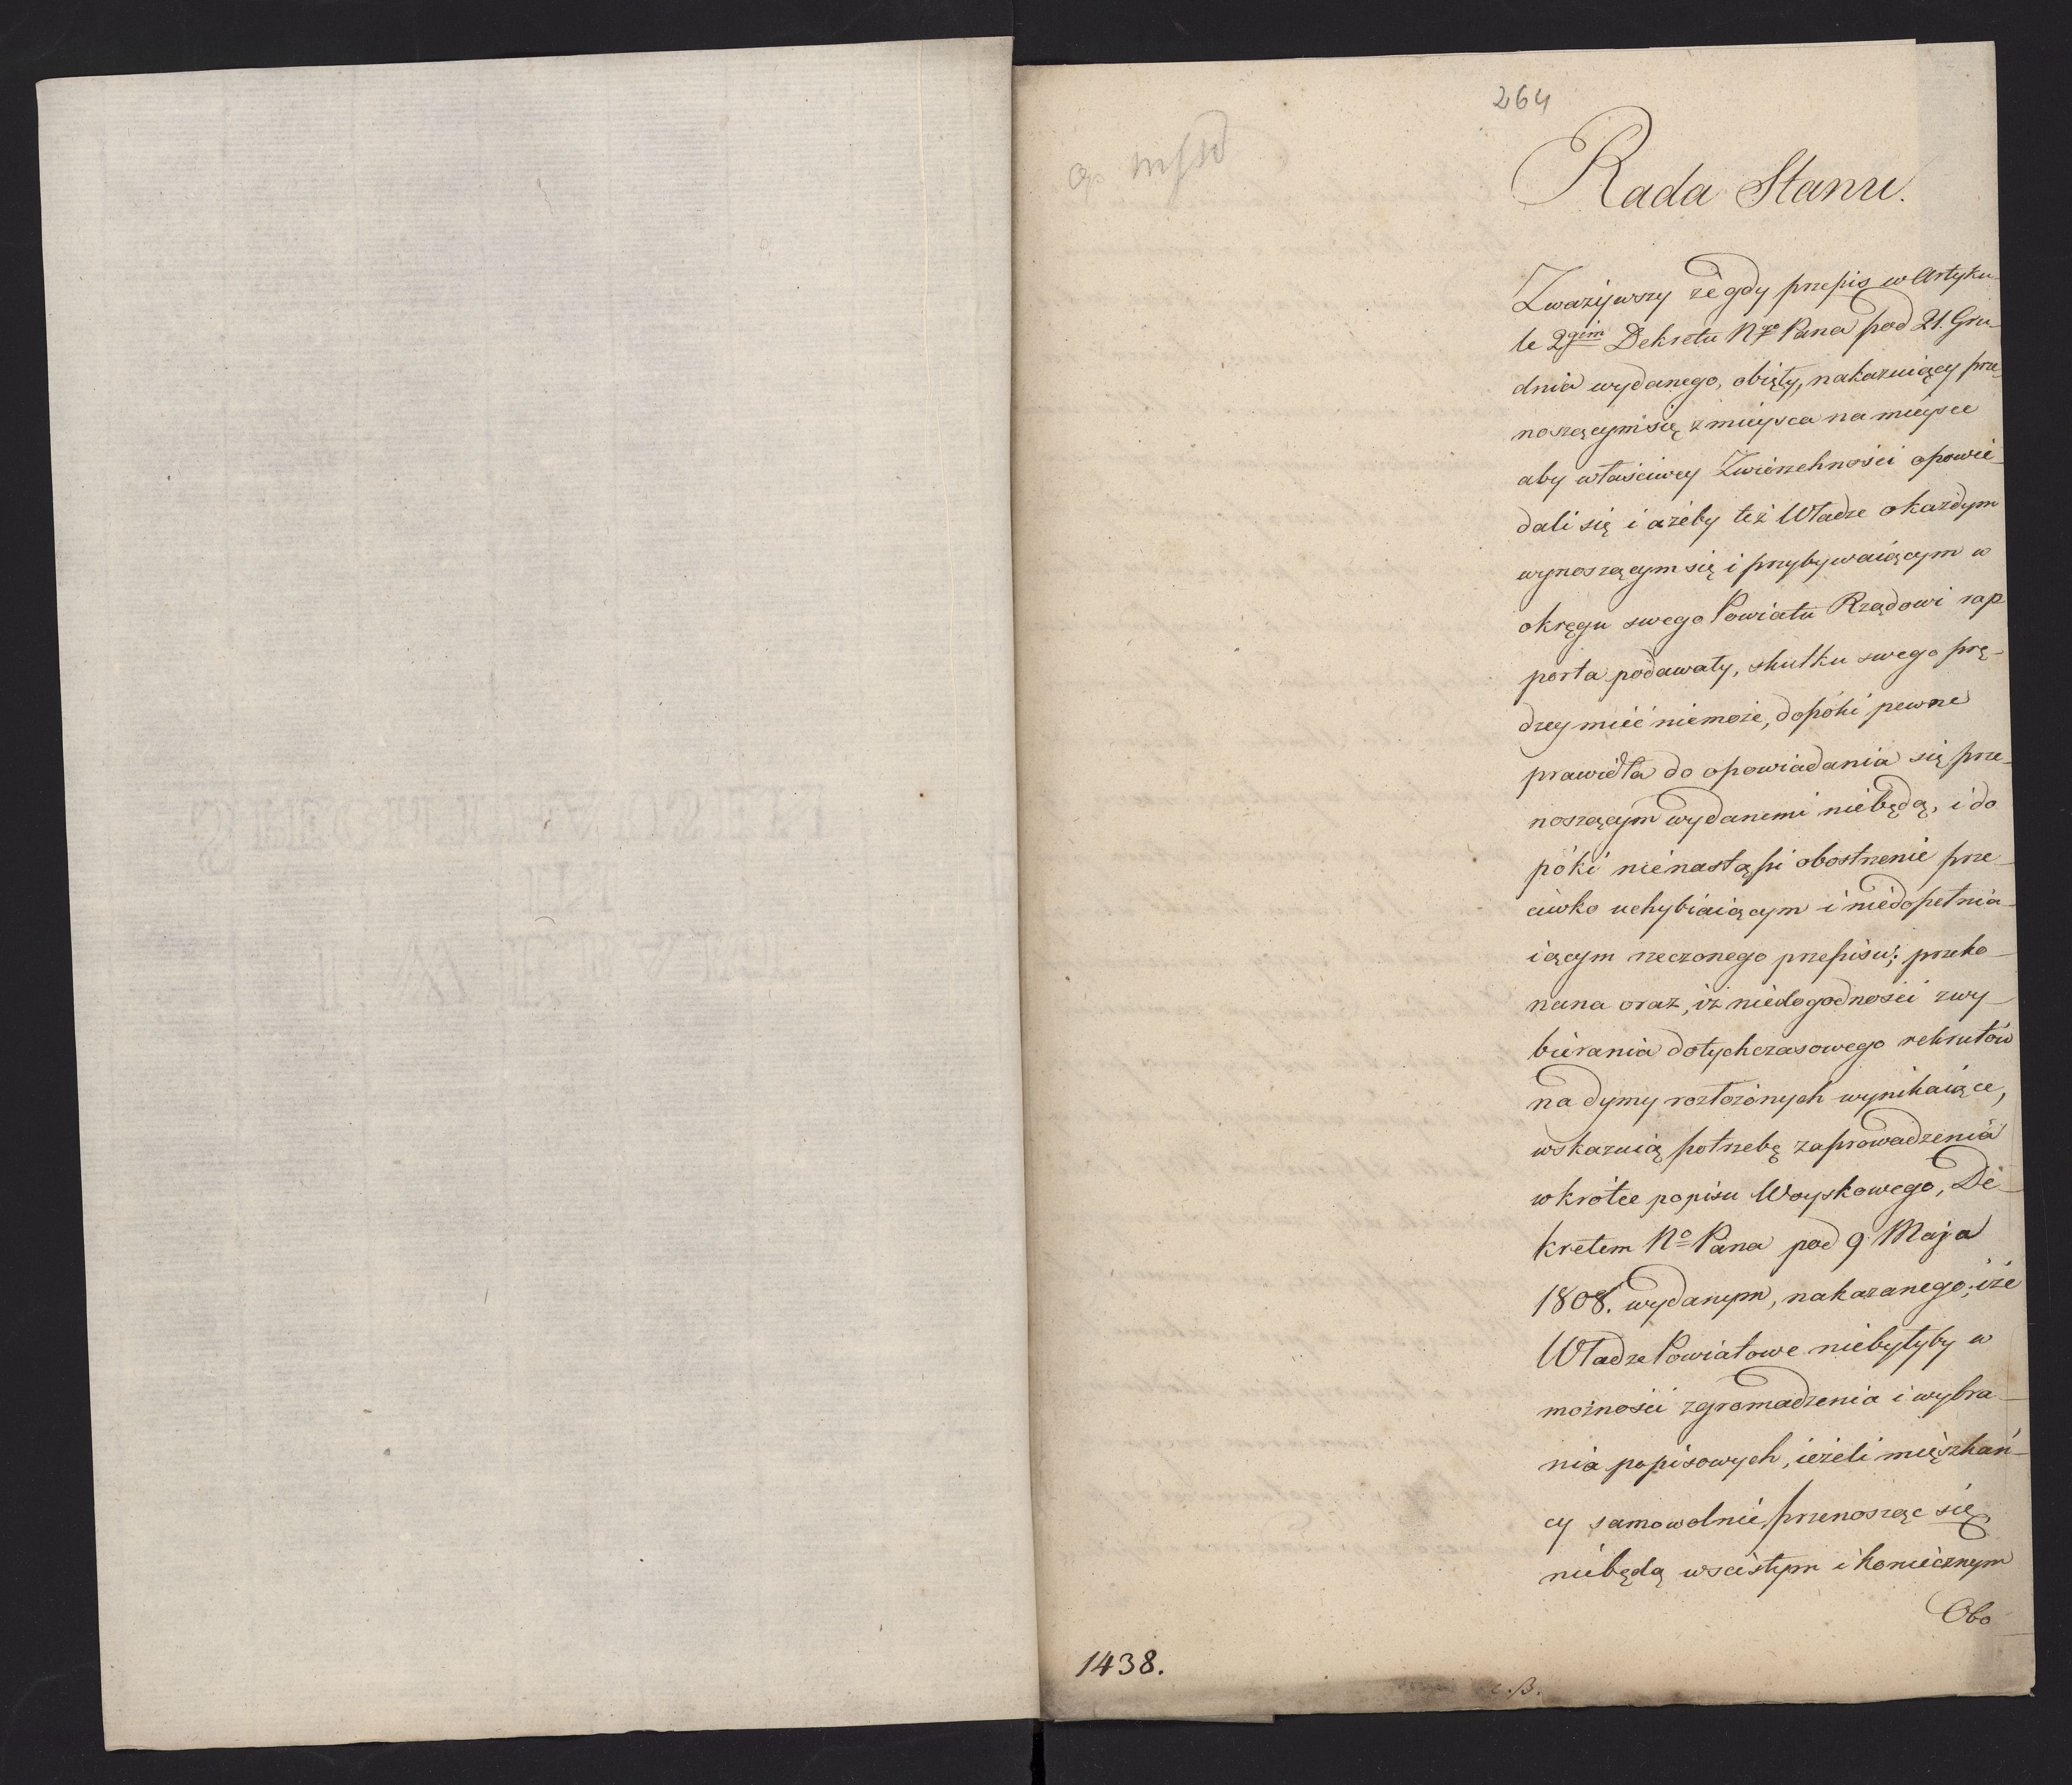 264
Rada Stanu.
Zważywszy że gdy przepis w Artyku-
le 2gim Dekretu Ngo Pana pod 21. Gru-
dnia wydanego, obięty, nakazuiący prze-
noszącym się z mieysca na mieysce
aby właściwey Zwierzchności opowie-
dali się i ażeby też Władze o każdym
wynoszącym się i przybywaiącym w
okręgu swego Powiatu Rządowi rap
porta podawały, skutku swego prę-
dzey mieć niemoże, dopóki pewne
prawidła do opowiadania się prze-
noszącym wydanemi niebędą, i do
póki nienastąpi obostrzenie prze-
ciwko uchybiaiącym i niedopełnia-
iącym rzeczonego przepisu; przeko-
nana oraz, iż niedogodności z wy-
bierania dotychczasowego rekrutów
na dymy rozłożonych wynikaiące,
wskazuią potrzebę zaprowadzenia
wkrótce popisu Woyskowego, De-
kretem No Pana pod 9 Maja
1808. wydanym, nakazanego; iże
Władze Powiatowe niebyłyby w
możności zgromadzenia i wybra-
nia popisowych, ieżeli mieszkań-
cy samowolnie przenosząc się
niebędą w scisłym i koniecznym
Obo
1438.